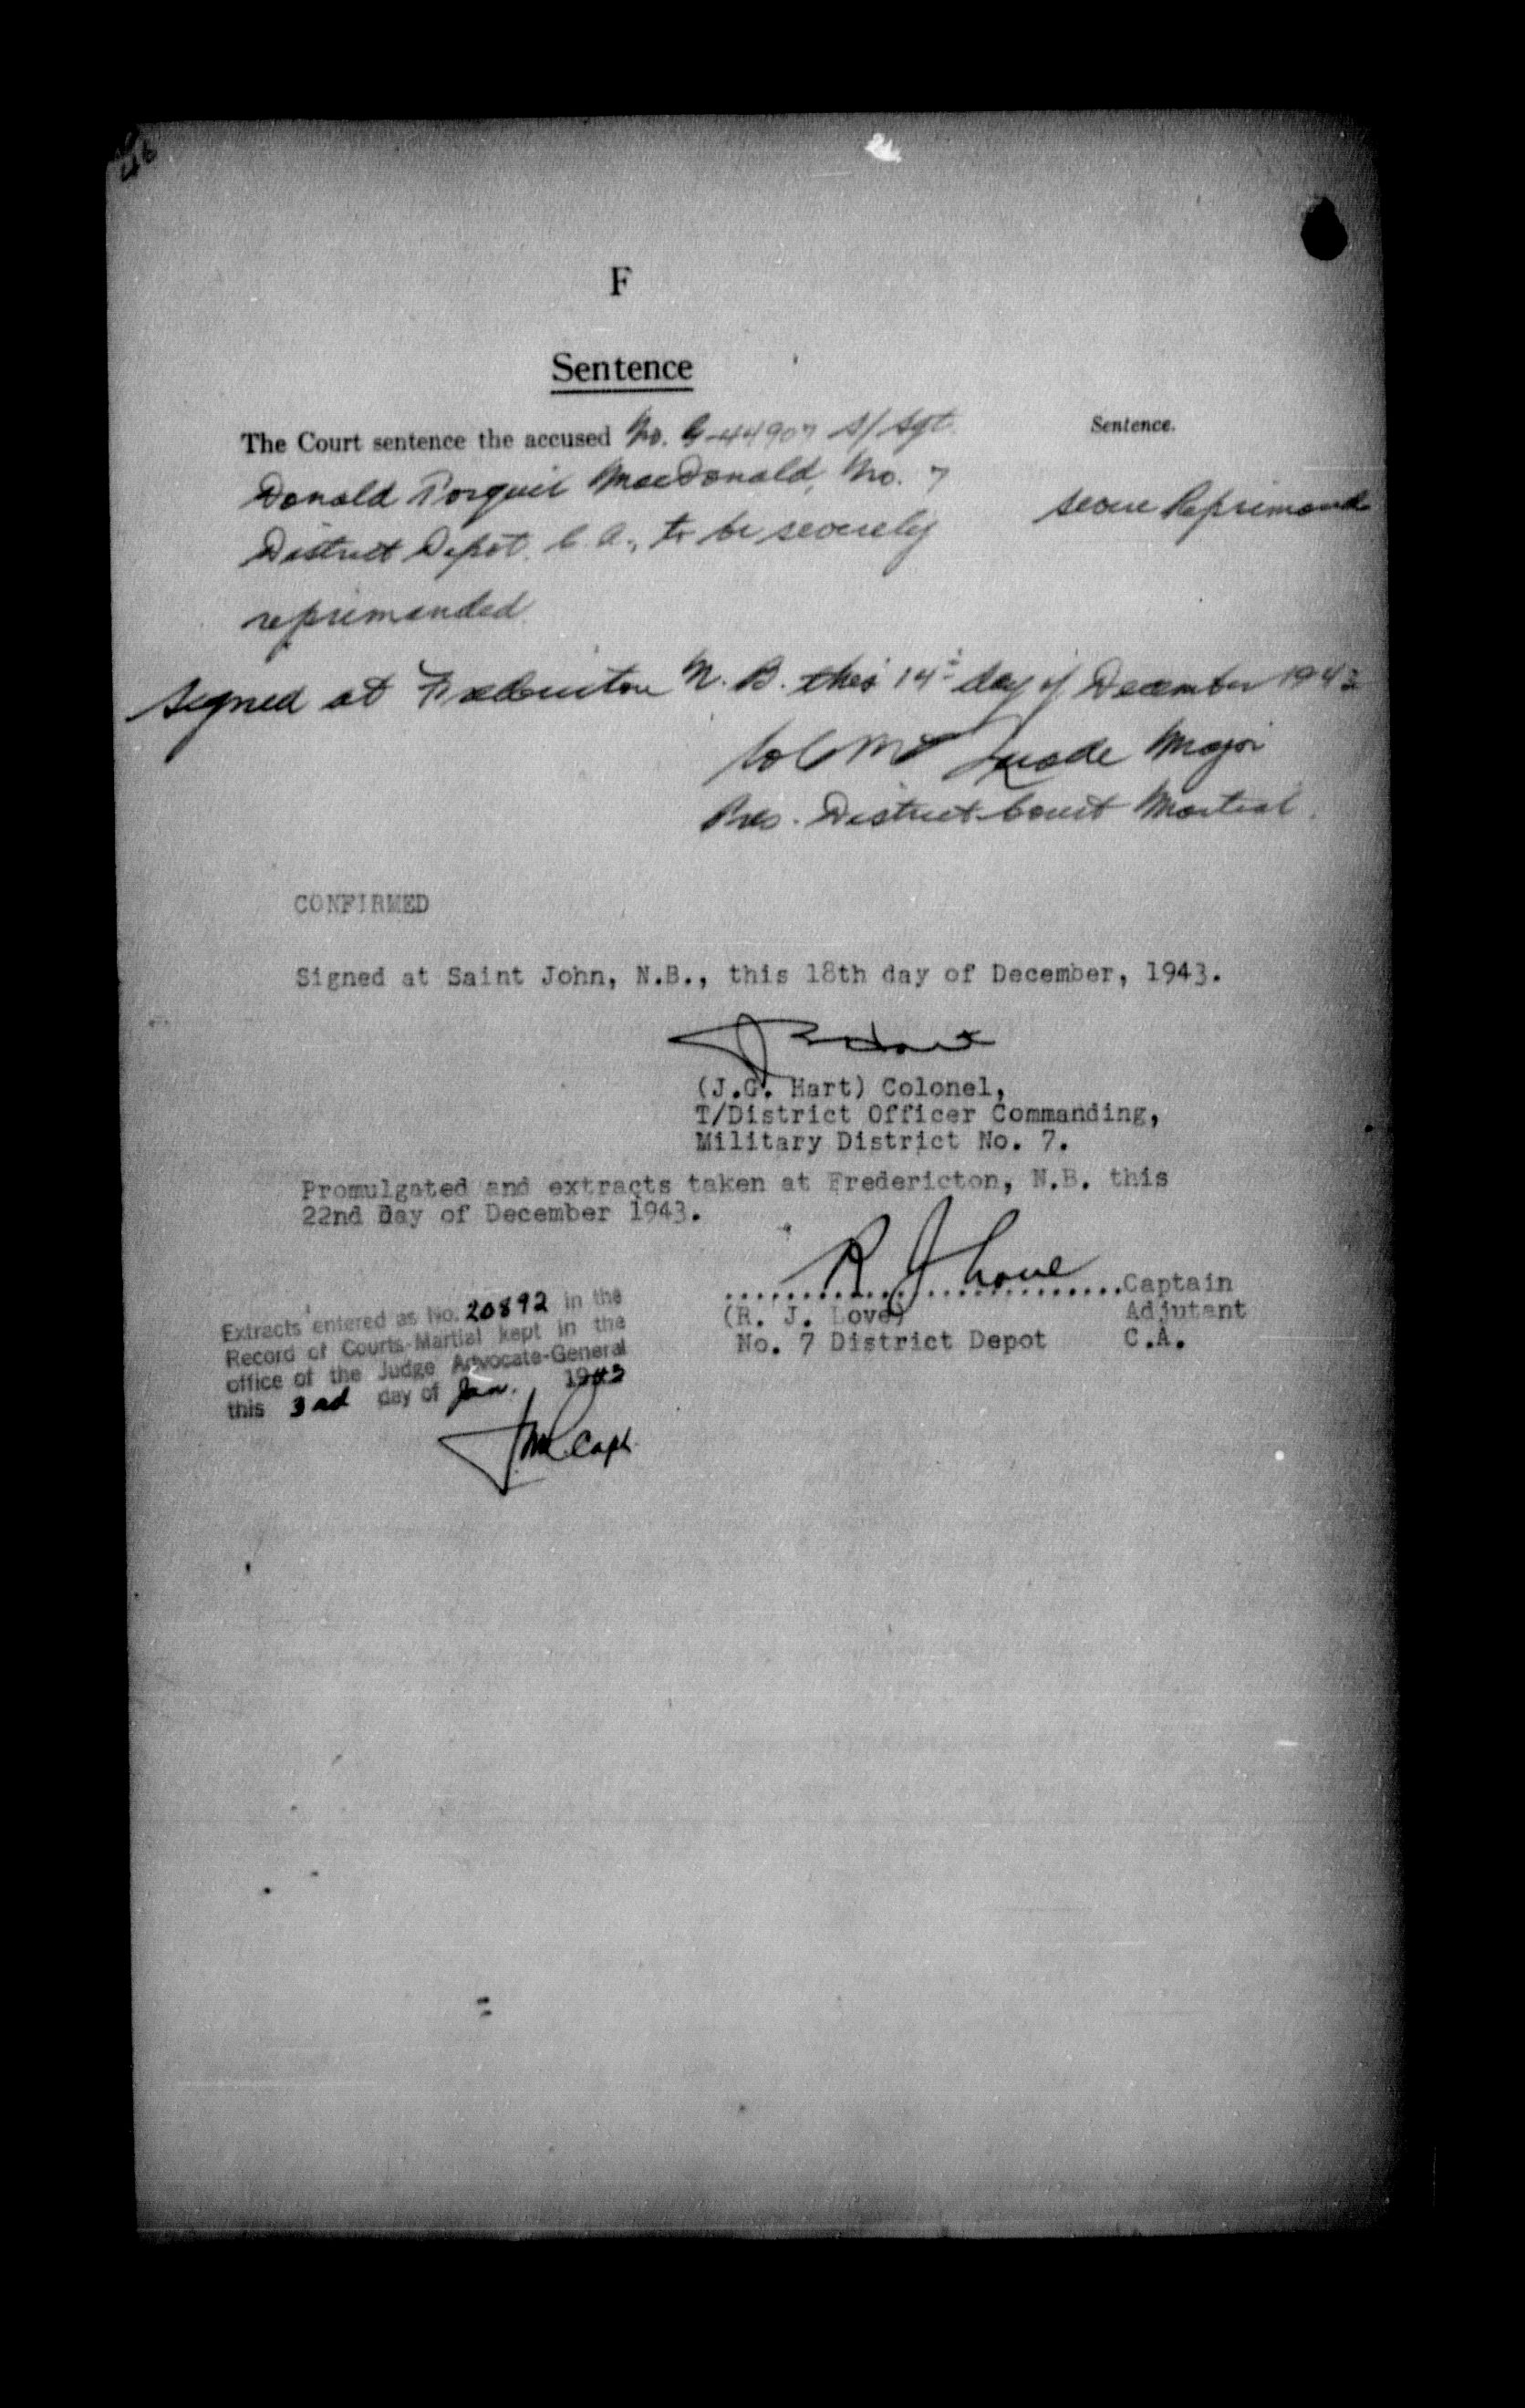 F
Sentence
The Court sentence the accused No. G-44907 S/Sgt.
Sentence.
Donald Torquil MacDonald, No. 7
District Depot, C.A., to be severely
severe Reprimand
reprimanded.
Signed at Fredericton N.B. this 14th day of December 1943
Major
Pres. District Court Martial.
CONFIRMED
Signed at Saint John, N.B., this 18th day of December, 1943.
(J.G. Hart) Colonel,
T/District Officer Commanding,
Military District No. 7.
Promulgated and extracts taken at Fredericton, N.B. this
22nd Day of December 1943.
R J Love
Captain
(R. J. Love) Adjutant
No. 7 District Depot C.A.
Extracts entered as No. 20892 in the
Record of Courts-Martial kept in the
office of the Judge Advocate-General
this 3rd day of Jan.
Capt.